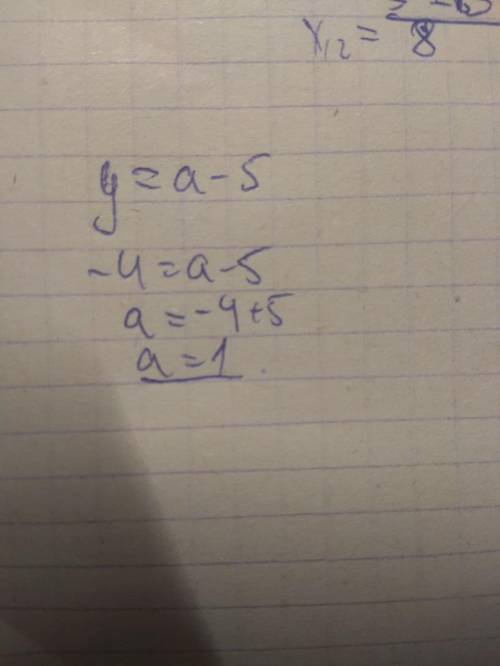 x₁₂ = 8
y = a - 5
-4 = a - 5
a = -4 + 5
a = 1